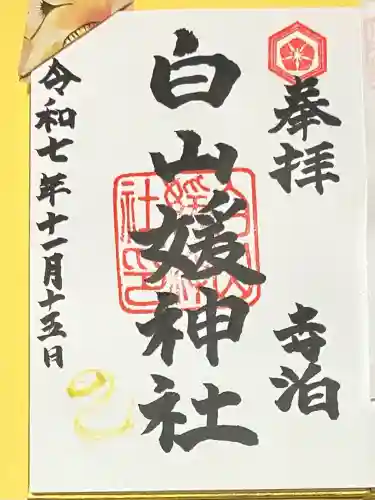 奉拝 寺泊
白山媛神社
令和七年十一月十五日